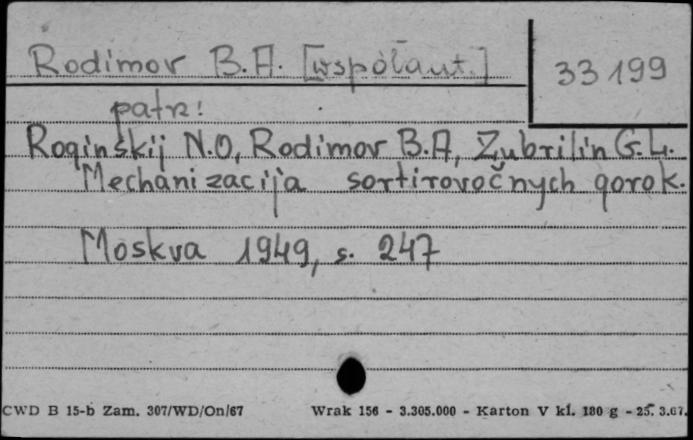 Rodimov B.A. [współaut.]
33199
patrz:
Roginskij N.O, Rodimov B.A, Zubrilin G.L.
Mechanizacija sortirovočnych gorok.
Moskva 1949, s. 247
CWD B 15-b Zam. 307/WD/On/67 Wrak 156 - 3.305.000 - Karton V kl. 180 g - 25. 3.67.